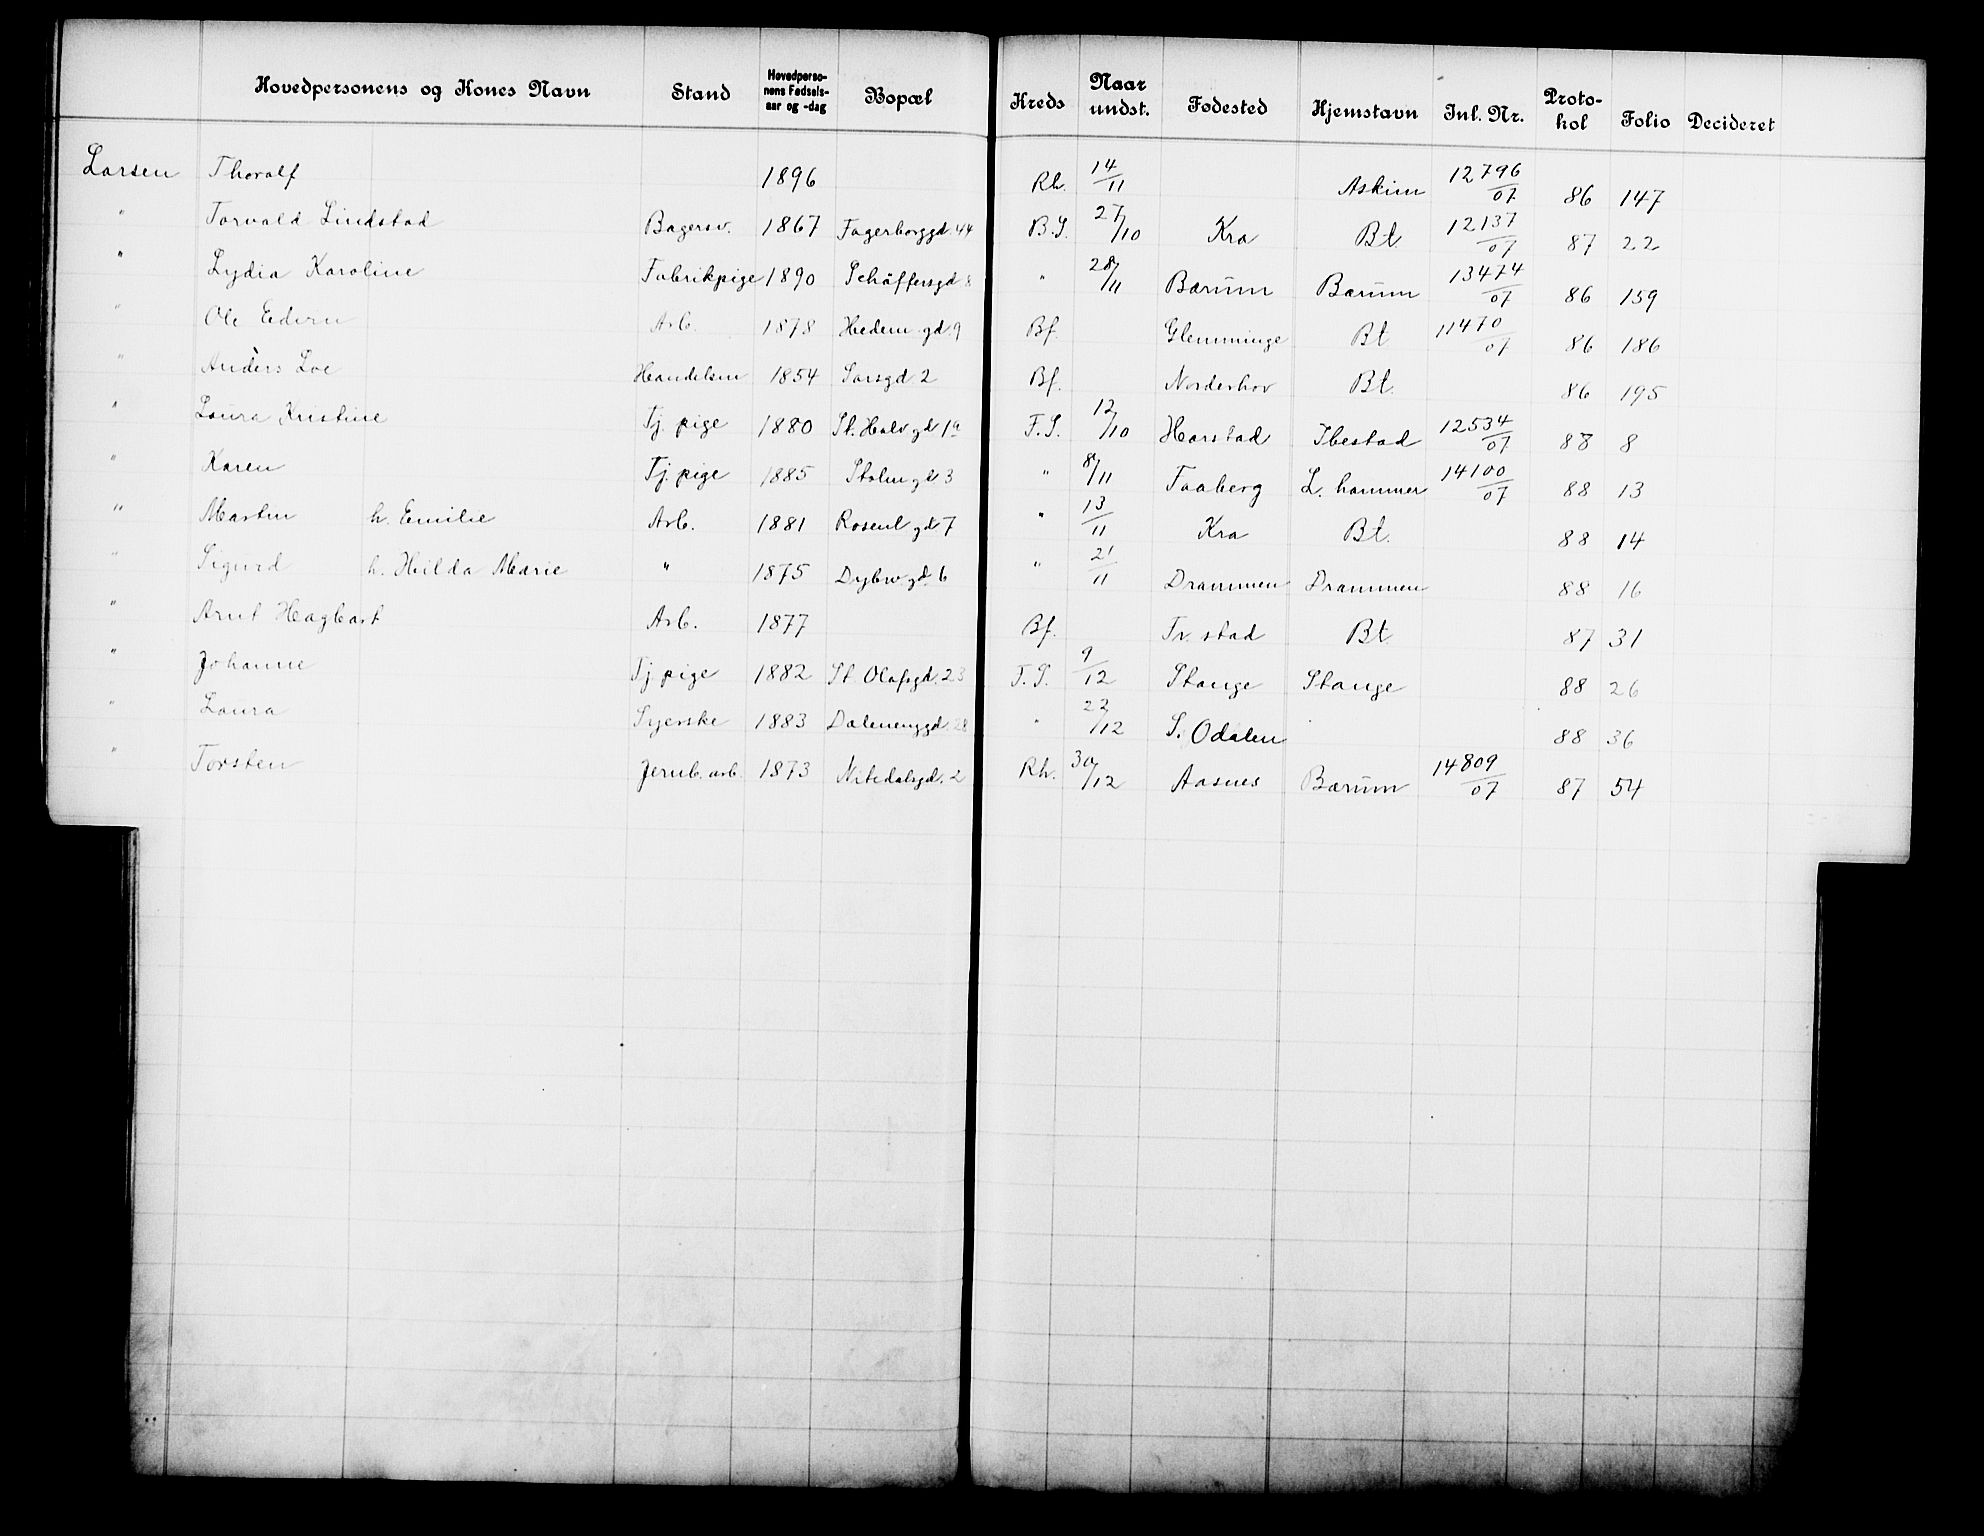 Hovedpersonens og Kones Navn Stand Hovedperso-nens Fødsels-aar og -dag Bopæl Kreds Naar undst. Fødested Hjemstavn Inl. Nr. Proto-kol Folio Decideret
Larsen Thoralf 1896 Rh. 14/11 Askim 12796/07 86 147
" Torvald Lindstad Bagersv. 1867 Fagerborggd 44 B.S. 27/10 Kra Bt 12137/07 87 22
" Lydia Karoline Fabrikpige 1890 Schäffersgd 8 " 28/11 Bærum Bærum 13474/07 86 159
" Ole Edvin Arb. 1878 Hedem gd. 9 Bf. Glemminge Bt 11470/07 86 186
" Anders Loe Handelsm 1854 Sarsgd 2 Bf. Norderhov Bt. 86 195
" Laura Kristine Tj. pige 1880 St. Halv gd 1a F.S. 12/10 Harstad Ibestad 12534/07 88 8
" Karen Tj. pige 1885 Stolm gd 3 " 8/11 Faaberg L. hammer 14100/07 88 13
" Martin h. Emilie Arb. 1881 Rosenl gd 7 " 13/11 Kra Bt. 88 14
" Sigurd h. Hilda Marie " 1875 Dybw gd 6 " 21/11 Drammen Drammen 88 16
" Arnt Hagbart Arb. 1877 Bf. Fr. stad Bt. 87 31
" Johanne Tj pige 1882 St. Olafsgd. 23 F.S. 9/12 Stange Stange 88 26
" Laura Syerske 1883 Dælenenggd. 28 " 22/12 S. Odalen 88 36
" Torsten Jernb. arb. 1873 Nitedalsgd. 2 Rh. 30/12 Aasnes Bærum 14809/07 87 54